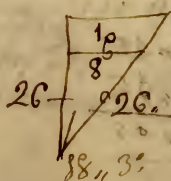 1
8
26 26.
88,, 3: